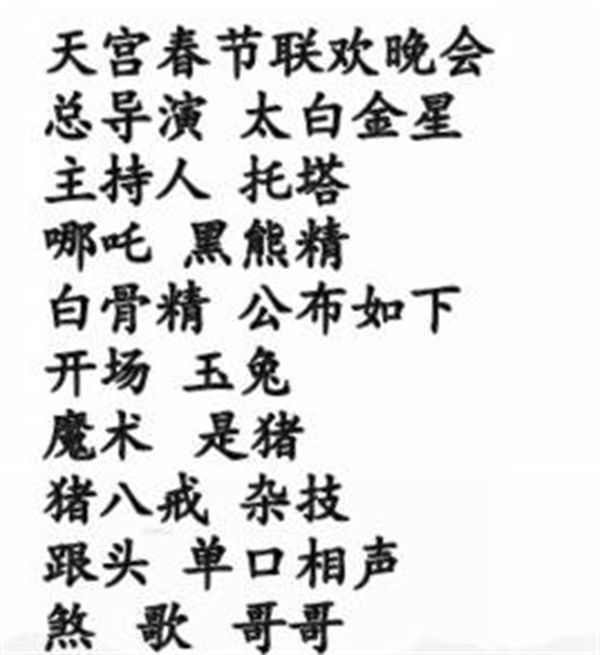 天宫春节联欢晚会
总导演 太白金星
主持人 托塔
哪吒 黑熊精
白骨精 公布如下
开场 玉兔
魔术 是猪
猪八戒 杂技
跟头 单口相声
煞 歌 哥哥